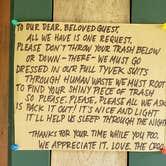 TO OUR DEAR, BELOVED GUEST,
ALL WE HAVE IS ONE REQUEST.
PLEASE DON'T THROW YOUR TRASH BELOW
OR DOWN - THERE - WE MUST GO
DRESSED IN OUR FULL TYVEK SUITS
THROUGH HUMAN WASTE WE MUST ROOT
TO FIND YOUR SHINY PIECE OF TRASH
SO PLEASE, PLEASE, PLEASE ALL WE ASK
IS PACK IT OUT! IT'S NICE AND LIGHT
IT'LL HELP US SLEEP THROUGH THE NIGHT
THANKS FOR YOUR TIME WHILE YOU POO,
WE APPRECIATE IT. LOVE, THE CROO